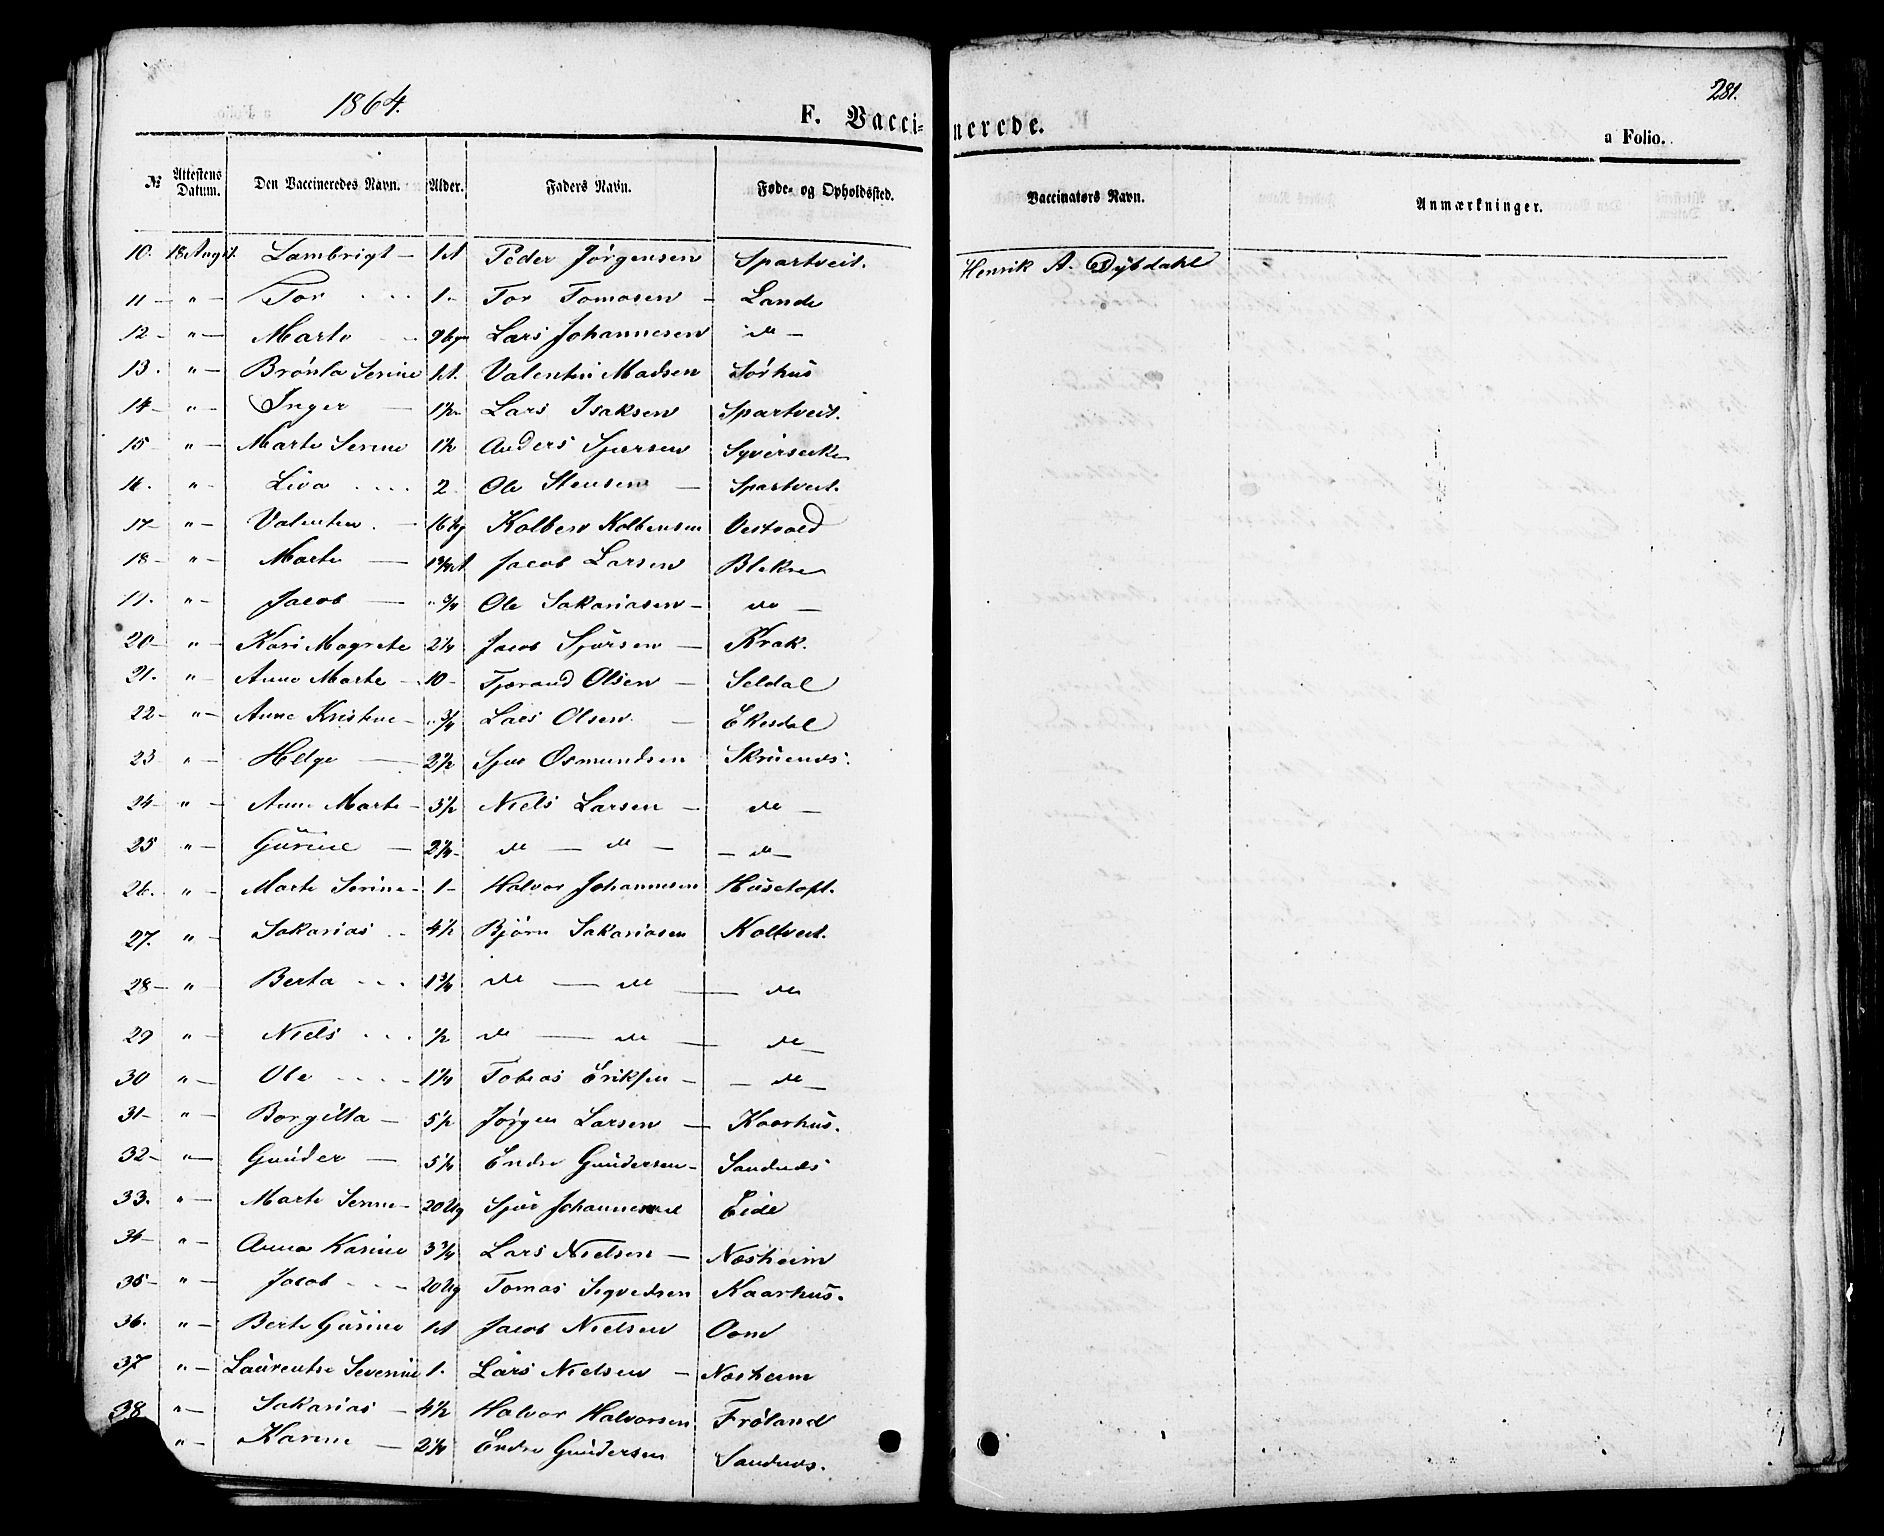 1864.
F. Vaccinerede.
281.
a Folio.
№ Attestens Datum. Den Vaccineredes Navn. Alder. Faders Navn. Føde- og Opholdssted. Vaccinators Navn. Anmærkninger.
10. 18 Augst. Lambrigt — 1 Peder Jørgensen Spartveit. Henrik A. Dybdahl
11 — " — Tor 1 - Tor Tomasen — Lande
12 — " — Marte Lars Johannesen do —
13. " — Brønla Serine Valentin Madsen Sørhus
14 — " — Inger — 1½ Lars Isaksen Spartveit.
15 " — Marte Serine 1½ Anders Sjursen
16. " — Liva 2 Ole Stensen — Spartveit.
17 — " — Valentin. — 16 Ug Kolben Kolbensen Vestvold
18 — " — Marte — Jacob Larsen
" — Jacob — Ole Sakariasen — do —
20 — " — Kari Magrete 2¼ Jacob Sjursen — Krak.
21. " — Anne Marte — 10 — Tjerand Olsen — Seldal
22 — " — Anne Kristine — " ¾ Lars Olsen — Ekesdal
23 " — Helge — 2½ Sjur Osmundsen
24 — " — Anne Marte — 3½ Niels Larsen — do —
25 " — Gurine — 2¼ — do — do — — do —
26. " — Marte Serine — 1 — Halvor Johannesen Husetoft.
27. " — Sakarias 4½ Bjørn Sakariasen Koltveit.
28 — " — Berta 1¾ do — do — do
29 " — Niels ½ do — do — do —
30 " — Ole 1¼ Tobias Eriksen — — do —
31 — " — Borgilla — 5½ Jørgen Larsen — Kaarhus.
32 — " — Gunder — 5¼ Endre Gundersen — Sandnes
33. " — Marte Serine — 20 Ug Sjur Johannesen Eide
34 — " — Anna Karine 3¾ Lars Nielsen — Næsheim
35 — " — Jacob 20 Ug Tomas Sigvedsen Kaarhus.
36. " — Berte Gurine Jacob Nielsen
37 " — Laurentse Severine 1. Lars Nielsen — Næsheim
38 " — Sakarias — 4½ Halvor Halvorsen Frøland
" — Karine — 2¼ Endre Gundersen Sandnes.